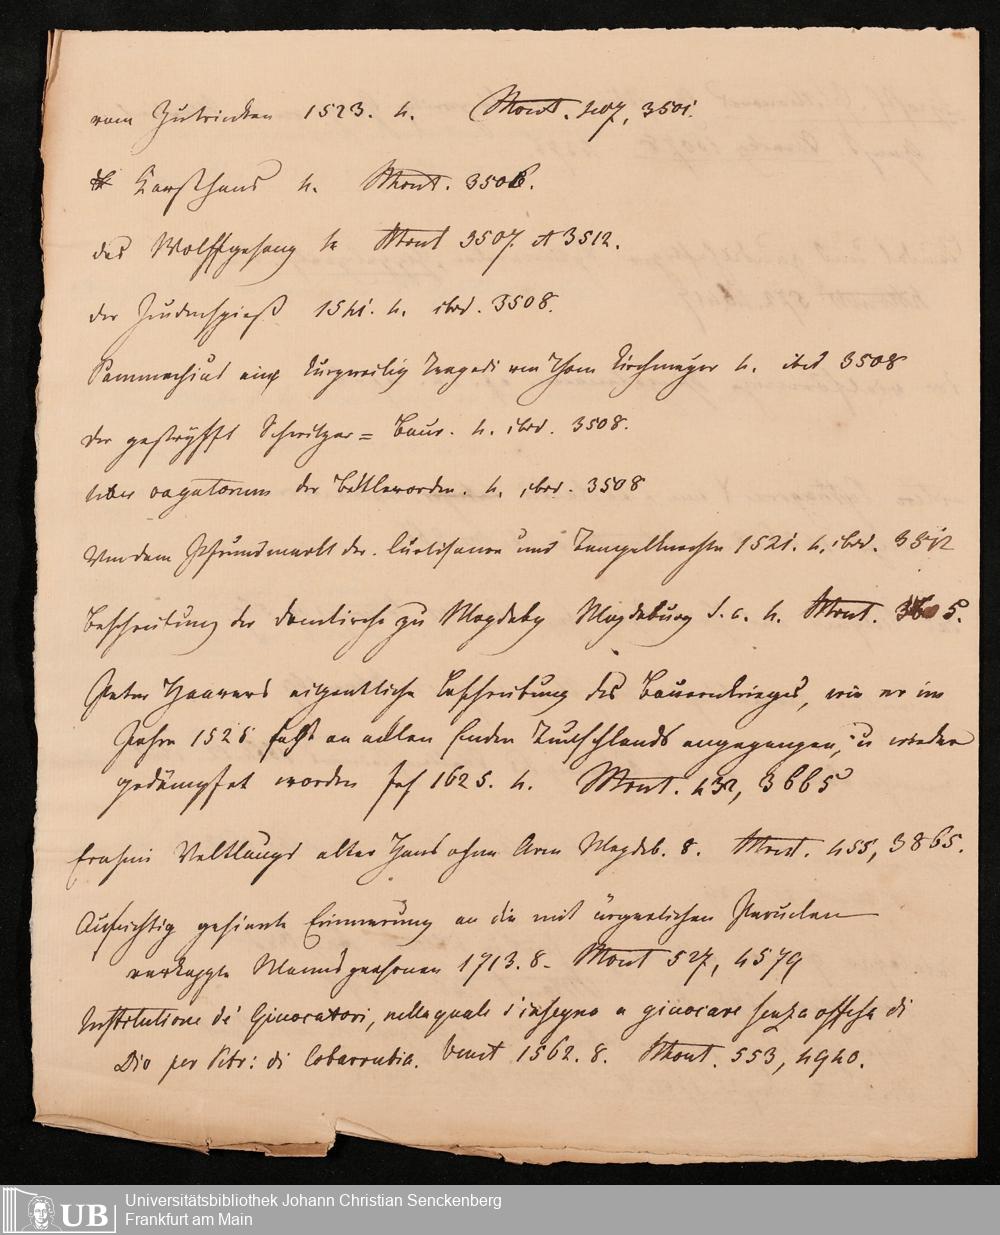 vom Zutrinken 1523. 4. Mont. 3501.
Karsthans 4. Mont. 3506.
des Wolffgesang 4 Mont 3507. et 3512.
der Judenspieß 1541. 4. ibid. 3508.
Pammachius eine kurzweilig Tragedi von Thom Kirchmeyer 4. ibid 3508
der gestryfft Schwitzer = Baur. 4. ibid. 3508.
liber vagatorum der Bettlerorden. 4. ibid. 3508
Von dem Pfrundmarkt der Curtisanen und Tempelknechte 1521. 4. ibid. 3512
Beschreibung der Domkirche zu Magdebg Magdeburg s. a. 4. Mont. 5.
Peter Haarers eigentliche Beschreibung des Bauernkrieges, wie er im
Jahre 1525 fast an allen Enden Teutschlands angegangen, u wieder
gedämpfet worden Frf 1625. 4. Mont. 432, 3665
Erasmi alter Hans ohne Magdeb. 8. Mont. 455, 3865.
Aufrichtig gesinnte Erinnerung an die mit ärgerlichen Perucken
verkappte Mannspersonen 1713. 8. Mont 527, 4579
Institutione de' Giuocatori, nella quale s'insegna a giuocare senza offesa di
Dio per Petr: di Cobarrubia. Venet 1562. 8. Mont. 553, 4940.
UB
Universitätsbibliothek Johann Christian Senckenberg
Frankfurt am Main